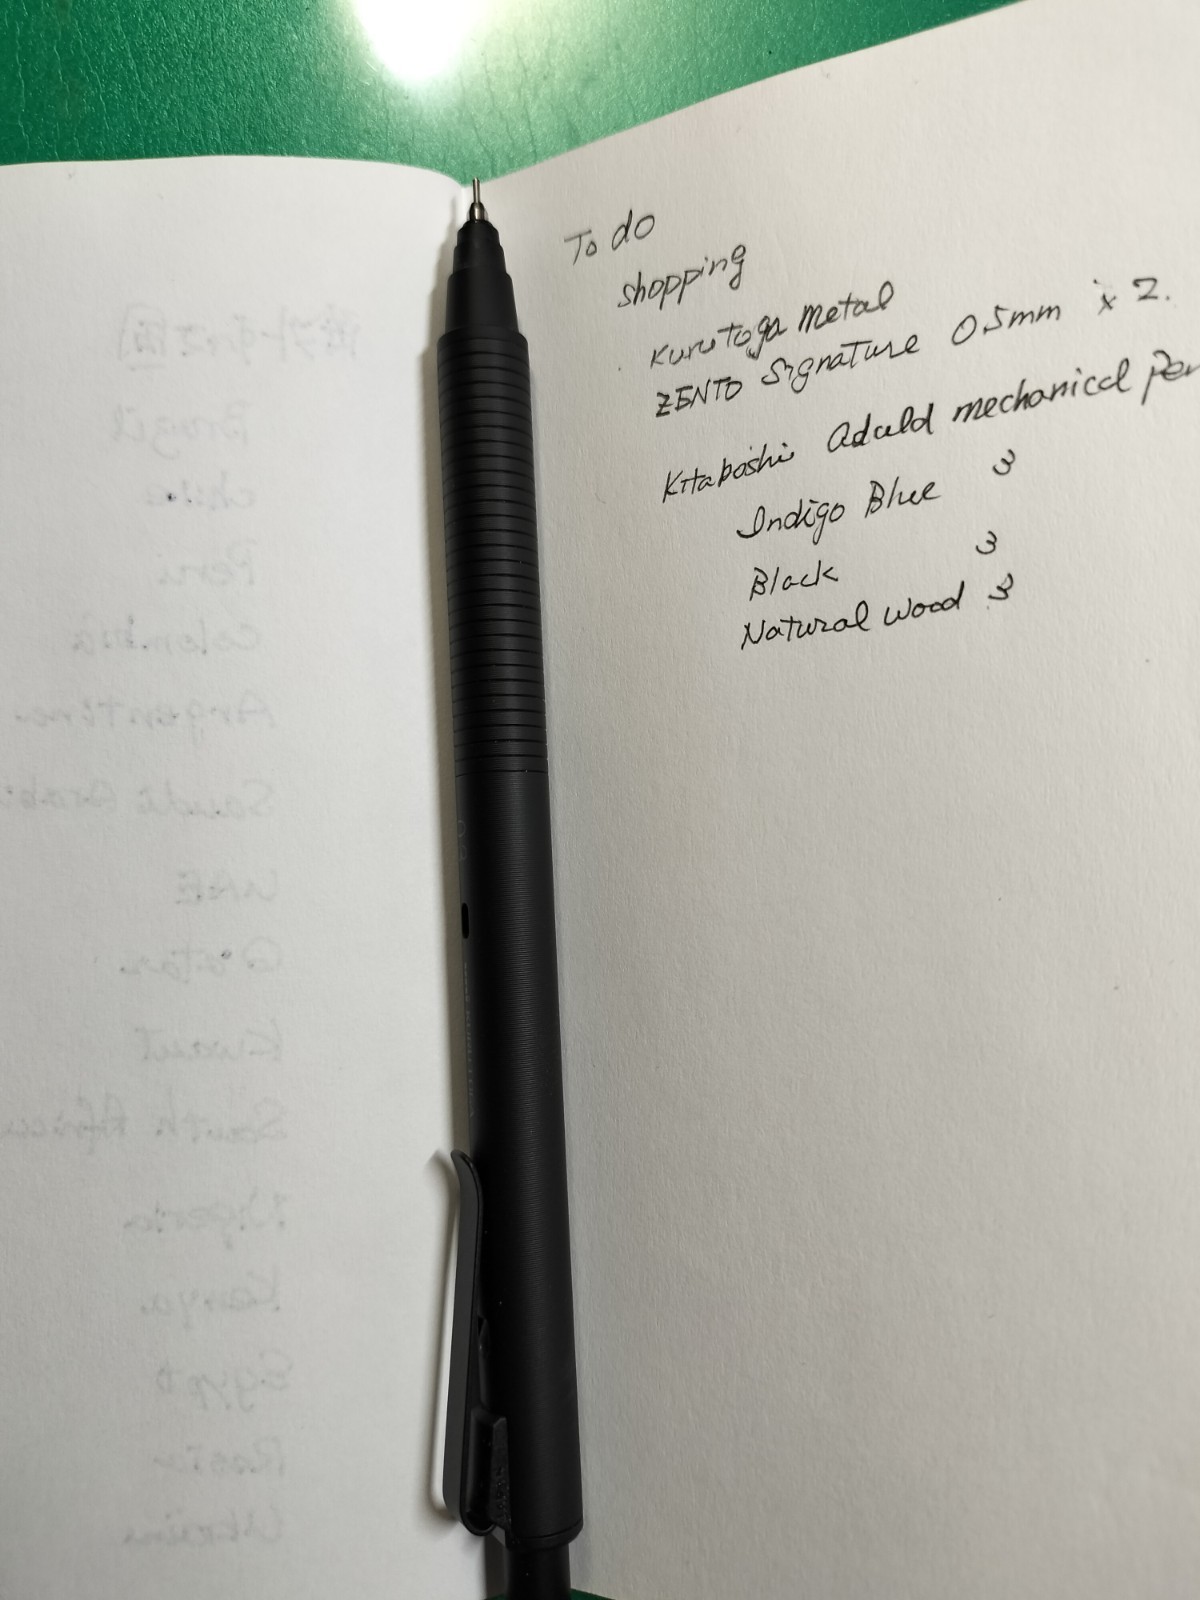 To do
shopping
Kuru Toga Metal
ZENTO Signature 0.5mm x 2.
Kitaboshi Aduld mechanical Pen
Indigo Blue 3
Black 3
Natural Wood 3
Brazil
Chile
Peru
Colombia
Argentina
Saudi Arabi
UAE
Qatar
Kwait
South Africa
Nigeria
Kenya
Egypt